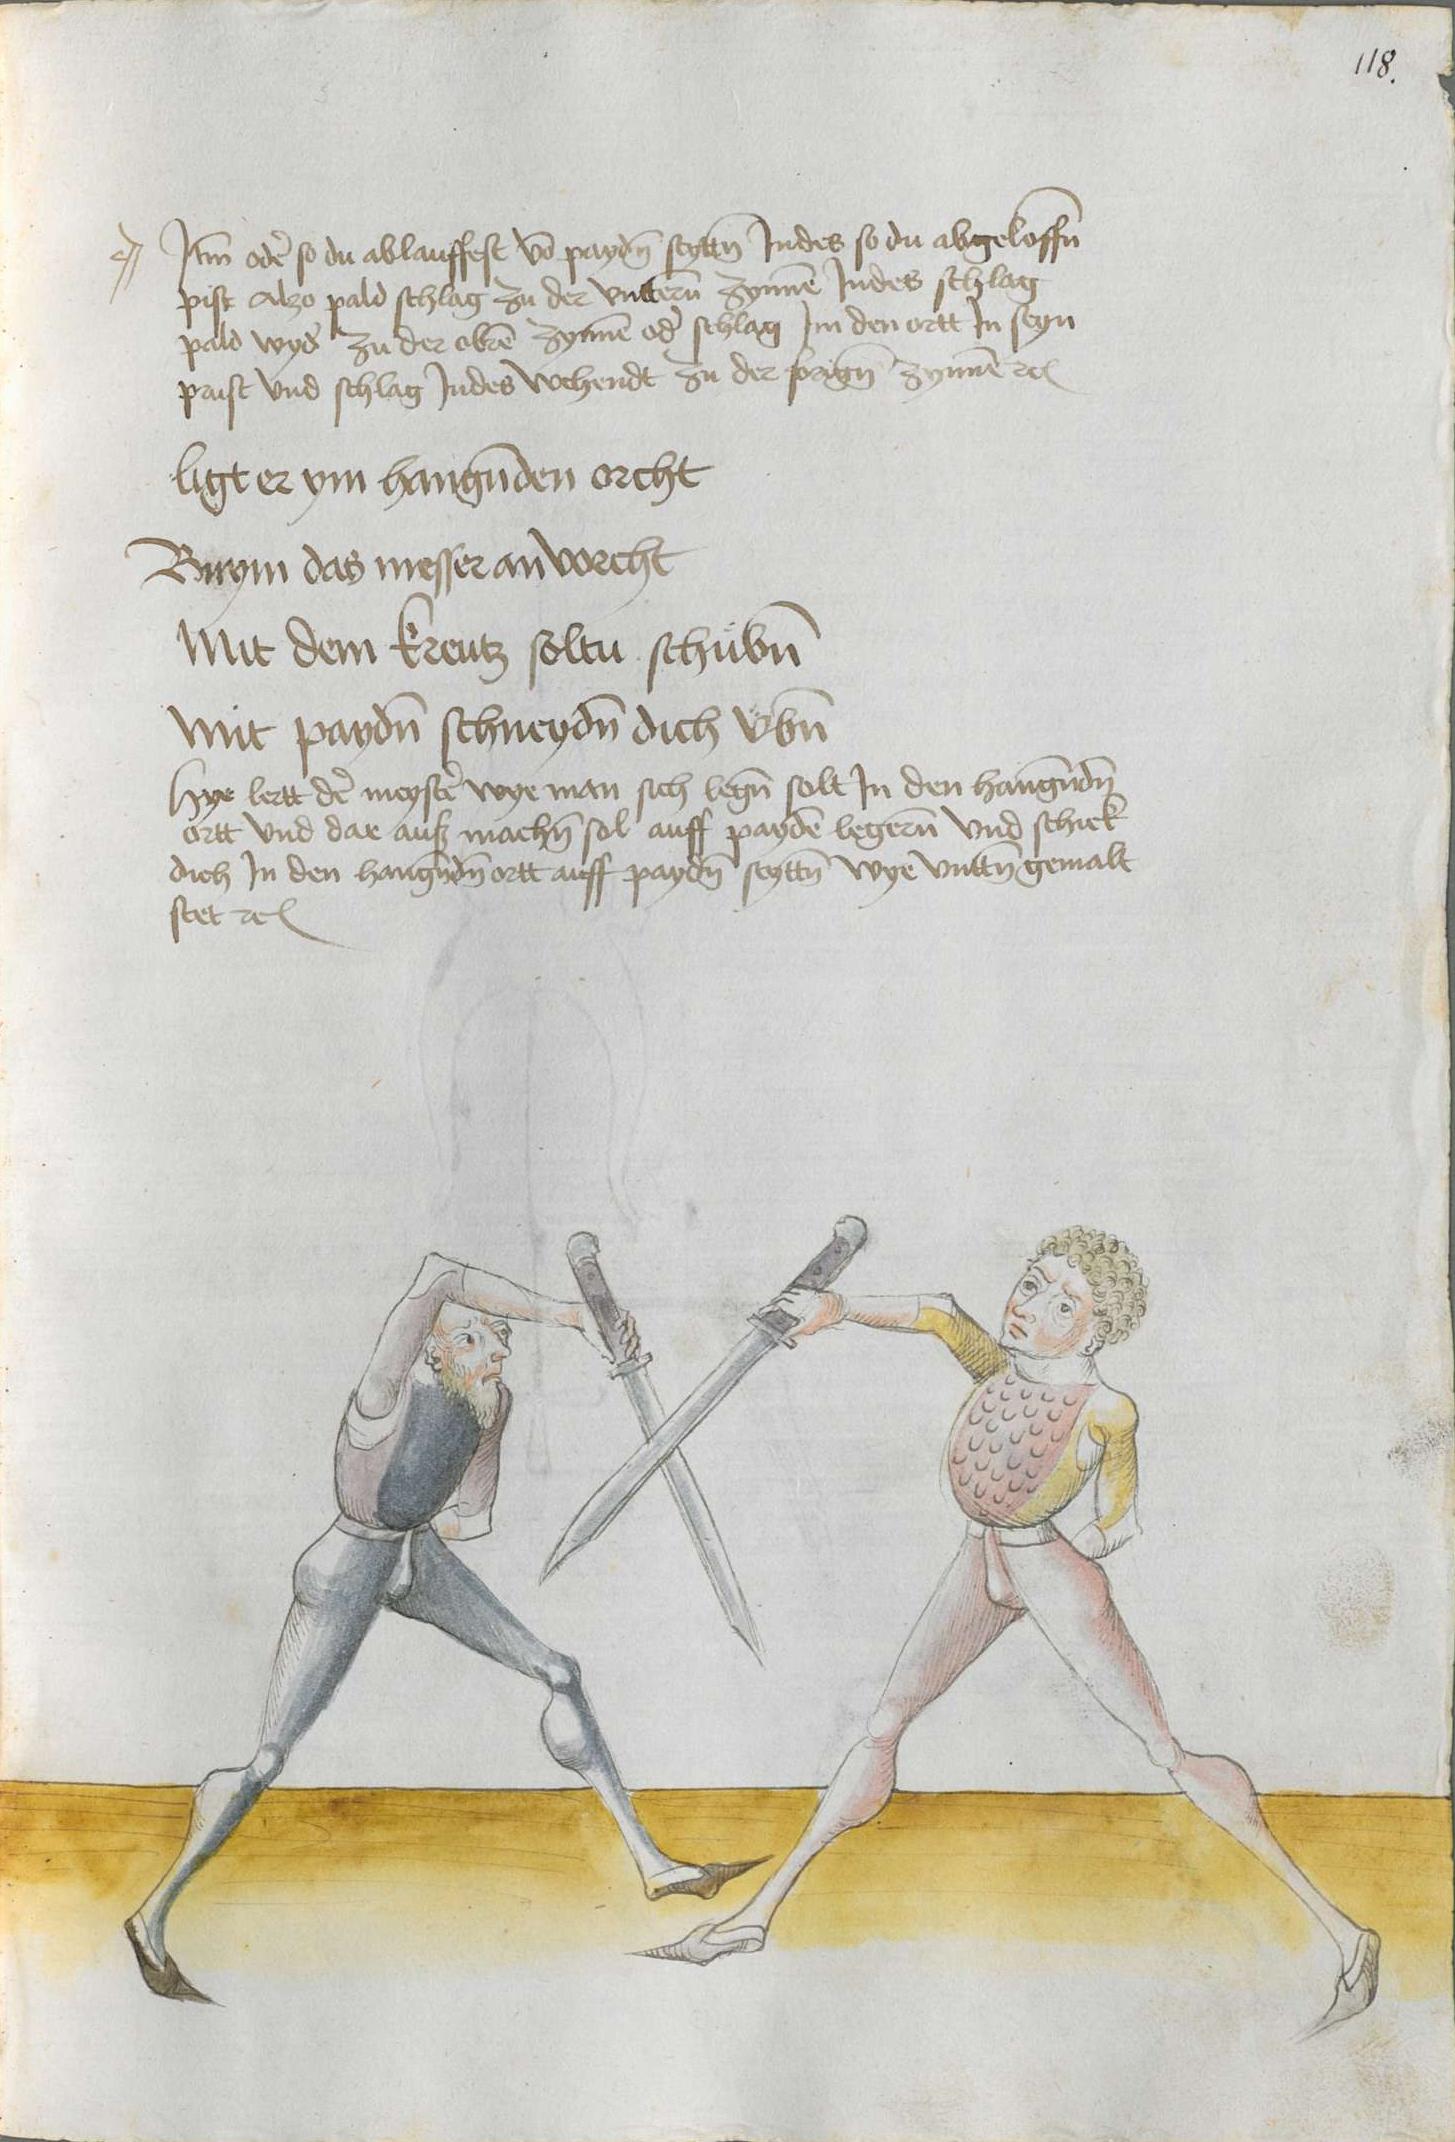 118.
Itm̄ oder̃ so du ablauffest vō paydn̄ seyttn̄ Jndes so du abgeloffn̄
pist Alzo pald schlag zu der vntterñ zynnē Jndes schlag
pald wyd̃ zu der obrē zynnē od̃ schlag Jm den ortt Jn seyn
prust vnd schlag Jndes wehendt zu der forign̄ zynnē ꝛcꝭ
ligt er ym hangn̄den orcht
Bwym das messer an vorcht
Mit dem kreutz soltu schübn̄
Mit paydn̄ schneydn̄ dich vbn̄
Hye lertt der̃ meyster̃ wye man sich legn̄ solt Jn den hangn̄dn̄
ortt vnd dar auß machn̄ sol auff paydē legerñ vnd schick
dich Jn den hangn̄dn̄ ortt auff paydn̄ seyttn̄ wye vnttn̄ gemalt
stet ꝛcꝭ